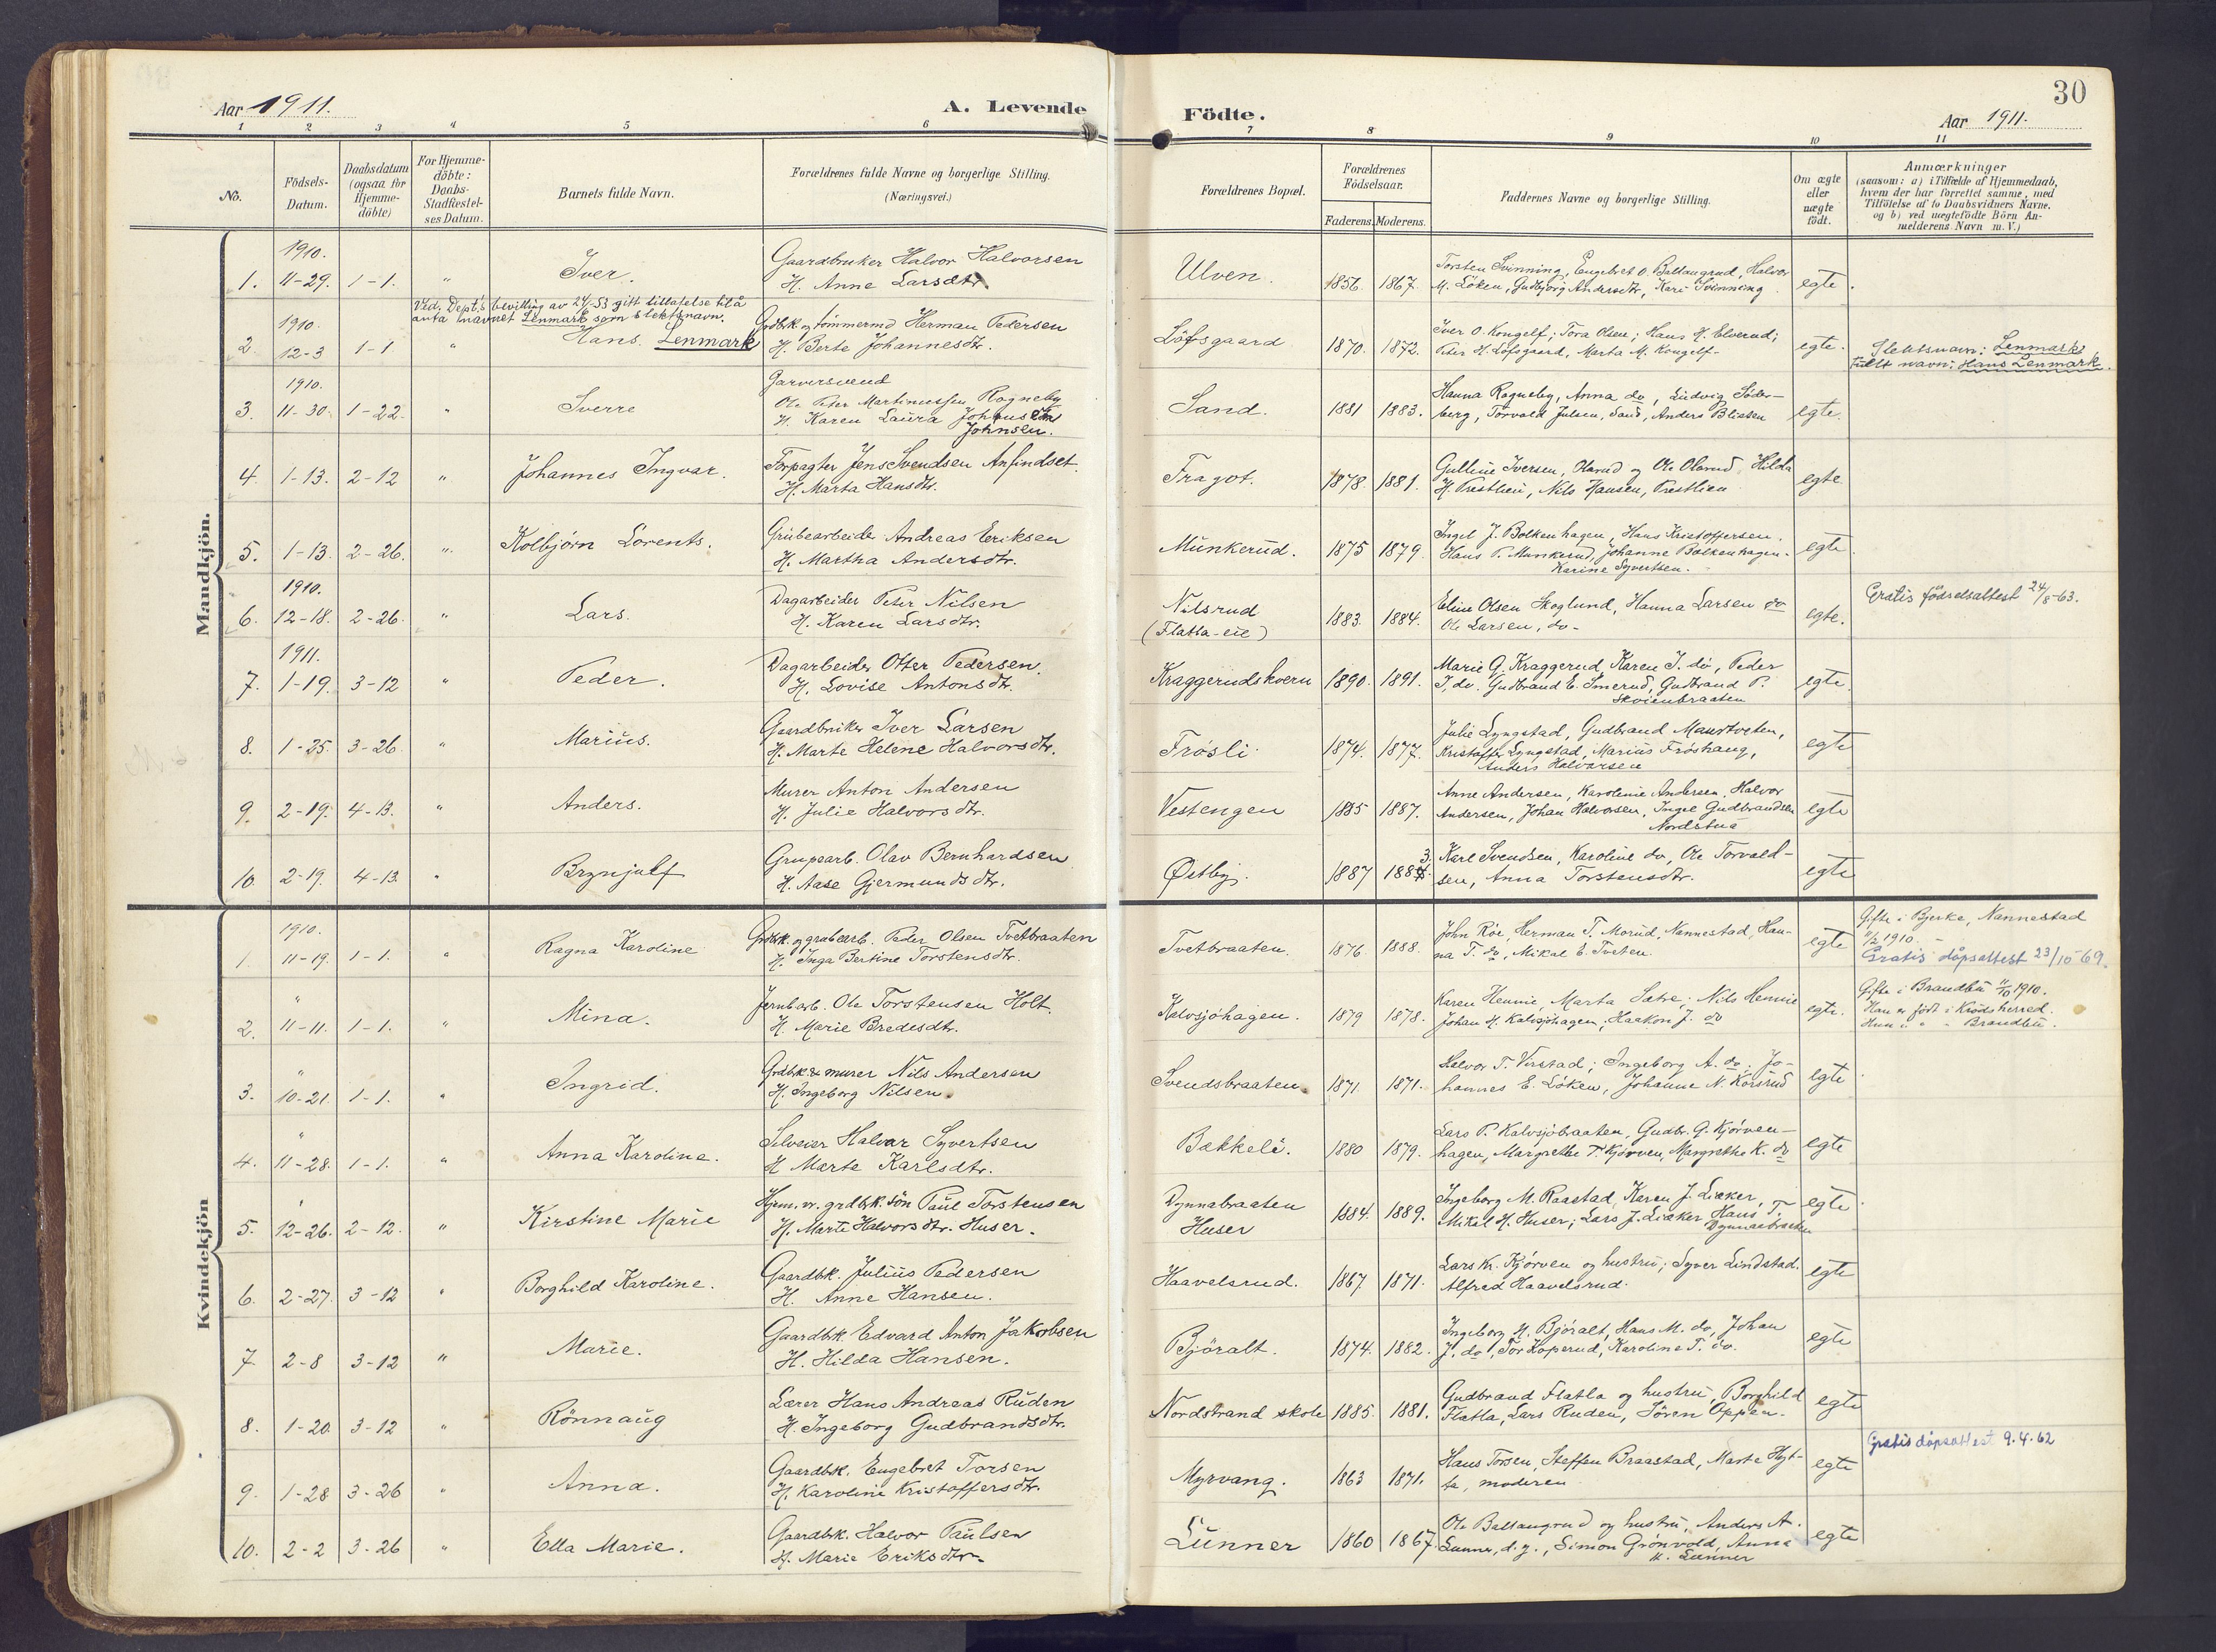 30
Aar 1911. A. Levende Födte. Aar 1911.
1 2 3 4 5 6 7 8 9 10 11
No.
Födsels-
Datum.
Daabsdatum
(ogsaa for
Hjemme-
döbte)
For Hjemme-
döbte:
Daabs-
Stadfæstel-
ses Datum.
Barnets fulde Navn.
Forældrenes fulde Navne og borgerlige Stilling.
(Næringsvei.)
Forældrenes Bopæl.
Forældrenes
Födselsaar.
Faderens. Moderens.
Faddernes Navne og borgerlige Stilling.
Om ægte
eller
uægte
födt.
Anmærkninger
(saasom: a) i Tilfælde af Hjemmedaab,
hvem der har forrettet samme, med
Tilföielse af to Daabsvidners Navne.
og b) ved uægtefödte Börn An-
melderens Navn m. V.)
Mandkjön.
1910.
1. 11-29. 1-1. " Iver. Gaardbruker Halvor Halvorsen
H. Anne Larsdtr.
Ulven. 1856. 1867. Torsten Svinning, Engebret O. Ballangrud, Halvor
M. Löken, Gudbjørg Andersdtr, Kari Svinning egte.
Ved Dept's bevilling av 24/- 53 gitt tillatelse til å
anta navnet Lenmark som slektsnavn.
1910.
2. 12-3 1-1. " Hans. Lenmark Grdbrk og tömmermd Herman Pedersen
H. Berte Johannesdtr.
Löfsgaard 1870. 1872. Iver O. Kongelf; Tora Olsen; Hans H. Elverud;
Peter H. Löfsgaard, Marta M. Kongelf- egte. Slektsnavn: Lenmark
Fullt navn: Hans Lenmark.
1910.
3. 11-30. 1-22. " Sverre Garversvend
Ole Peter Martinussen Rogneby
H. Karen Laura
Johnsen.
Sand. 1881 1883. Hanna Rogneby, Anna do, Ludvig Söder-
berg, Torvald Julsen, Sand, Anders Bliksen egte.
4. 1-13. 2-12 " Johannes Ingvar. Forpagter Jens Svendsen Anfindset.
H. Marta Hansdtr.
Fragot. 1878. 1881. Gulline Iversen, Olerud og Ole Olerud Hilda
H. Prestlien, Nils Hansen, Prestlien egte
5. 1-13. 2-26. " Kolbjörn Lorents. Grubearbeider Andreas Eriksen
H. Martha Andersdtr.
Munkerud. 1875 1879. Ingel J. Bolkenhagen, Hans Kristoffersen.
Hans P. Munkerud, Johanne Bolkenhagen.
Karine Syvertsen. egte.
1910.
6. 12-18. 2-26. " Lars. Dagarbeider Peter Nilsen
H. Karen Larsdtr.
Nilsrud
(Flatla-eie) 1883. 1884. Eline Olsen Skoglund, Hanna Larsen do
Ole Larsen, do- egte. Gratis födselsattest 24/8-63.
1911.
7. 1-19. 3-12 " Peder. Dagarbeider Otter Pedersen.
H. Lovise Antonsdtr.
Kraggerudskvern 1890. 1891. Marie G. Kraggerud Karen I. do, Peder
I, do. Gudbrand E. Smerud, Gudbrand P.
Skoienbraaten egte.
8. 1-25. 3-26. " Marius. Gaardbruker Iver Larsen
H. Marte Helene Halvorsdtr.
Frösli 1874. 1877. Julie Lyngstad, Gudbrand Maurtveten,
Kristoffer Lyngstad, Marius Fröshaug,
Anders Halvorsen egte
9. 2-19. 4-13. " Anders. Murer Anton Andersen
H. Julie Halvorsdtr.
Vestengen 1885 1887. Anne Andersen, Karoline Andersen, Halvor
Andersen, Johan Halvorsen, Ingel Gudbrandsen
Nordstua egte
10. 2-19. 4-13 " Brynjulf Grupearb. Olav Bernhardsen
H. Aase Gjermundsdtr.
Østby. 1887 1883. Karl Svendsen, Karoline do, Ole Torvald-
sen, Anna Torstensdtr. egte
Kvindekjön
1910.
1. 11-19. 1-1. " Ragna Karoline Grdbrk. og grubearb. Peder Olsen Tvetbraaten
H. Inga Bertine Torstensdtr.
Tvetbraaten. 1876 1888. John Röe, Herman T. Morud, Nannestad, Han-
na T. do, Mikal E. Tveten. egte Gifte i Bjerke, Nannestad
1910.
Gratis dåpsattest 23/10-69.
"
2. 11-11. 1-1. " Mina. Jernbarb. Ole Torstensen Holt.
H. Marie Bredesdtr.
Kalvsjöhagen. 1879 1878. Karen Hennie, Marta Sætre; Nils Hennie
Johan H. Kalvsjöhagen, Haakon J. do egte. Gifte i Brandbu 1910.
Han er födt i Krödsherred.
Hun " " - Brandbu.
"
3. 10-21. 1-1. " Ingrid. Grdbrk & murer Nils Andersen
H. Ingeborg Nilsen.
Svendsbraaten. 1871. 1871. Halvor T. Virstad; Ingeborg A. do; Jo-
hannes E. Löken, Johanne N. Korsrud egte
"
4. 11-28. 1-1. " Anna Karoline. Selveier Halvar Syvertsen
H Marte Karlsdtr.
Bakkeli. 1880 1879. Lars P. Kalvsjöbraaten, Gudbr. G. Kjörven-
hagen, Margrethe T. Kjörven, Margrethe K. do egte
5. 12-26. 2-12. " Kirstine Marie Hjem. v. grdbrk. sön Paul Torstensen
H. Marte Halvorsdtr. Huser.
Dynnabraaten
Huser 1884. 1889. Ingeborg M. Raastad, Karen J. Liaker,
Mikal H. Huser; Lars J. Liaker Hans T.
Dynnabraaten egte
6. 2-27. 3-12 " Borghild Karoline. Gaardbk. Julius Pedersen
H. Anne Hansen.
Haavelsrud. 1867. 1871. Lars K. Kjörven og hustru; Syver Lindstad.
Alfred Haavelsrud. egte
7 2-8 3-12 " Marie. Gaardbk. Edvard Anton Jakobsen
H. Hilda Hansen.
Björalt. 1874. 1882. Ingeborg H. Björalt, Hans M. do, Johan
J. do, Tor Koperud, Karoline T. do. egte
8. 1-20. 3-12 " Rönnaug Lærer Hans Andreas Ruden
H. Ingeborg Gudbrandsdtr.
Nordstrand skole 1885. 1881. Gudbrand Flatla og hustru, Borghild
Flatla, Lars Ruden, Sören Oppen. egte
9. 1-28 3-26 " Anna. Gaardbk. Engebret Torsen
H. Karoline Kristoffersdtr.
Myrvang. 1863 1871. Hans Torsen, Steffen Braastad, Marte Hyt-
ta, moderen egte Gratis dåpsattest 9.4.62
10. 2-2 3-26 " Ella Marie. Gaardbk. Halvor Paulsen
H. Marie Eriksdtr.
Lunner 1860 1867. Ole Ballangrud og hustru, Anders A.
Lunner, d.y., Simon Grönvold, Anna
H. Lunner egte